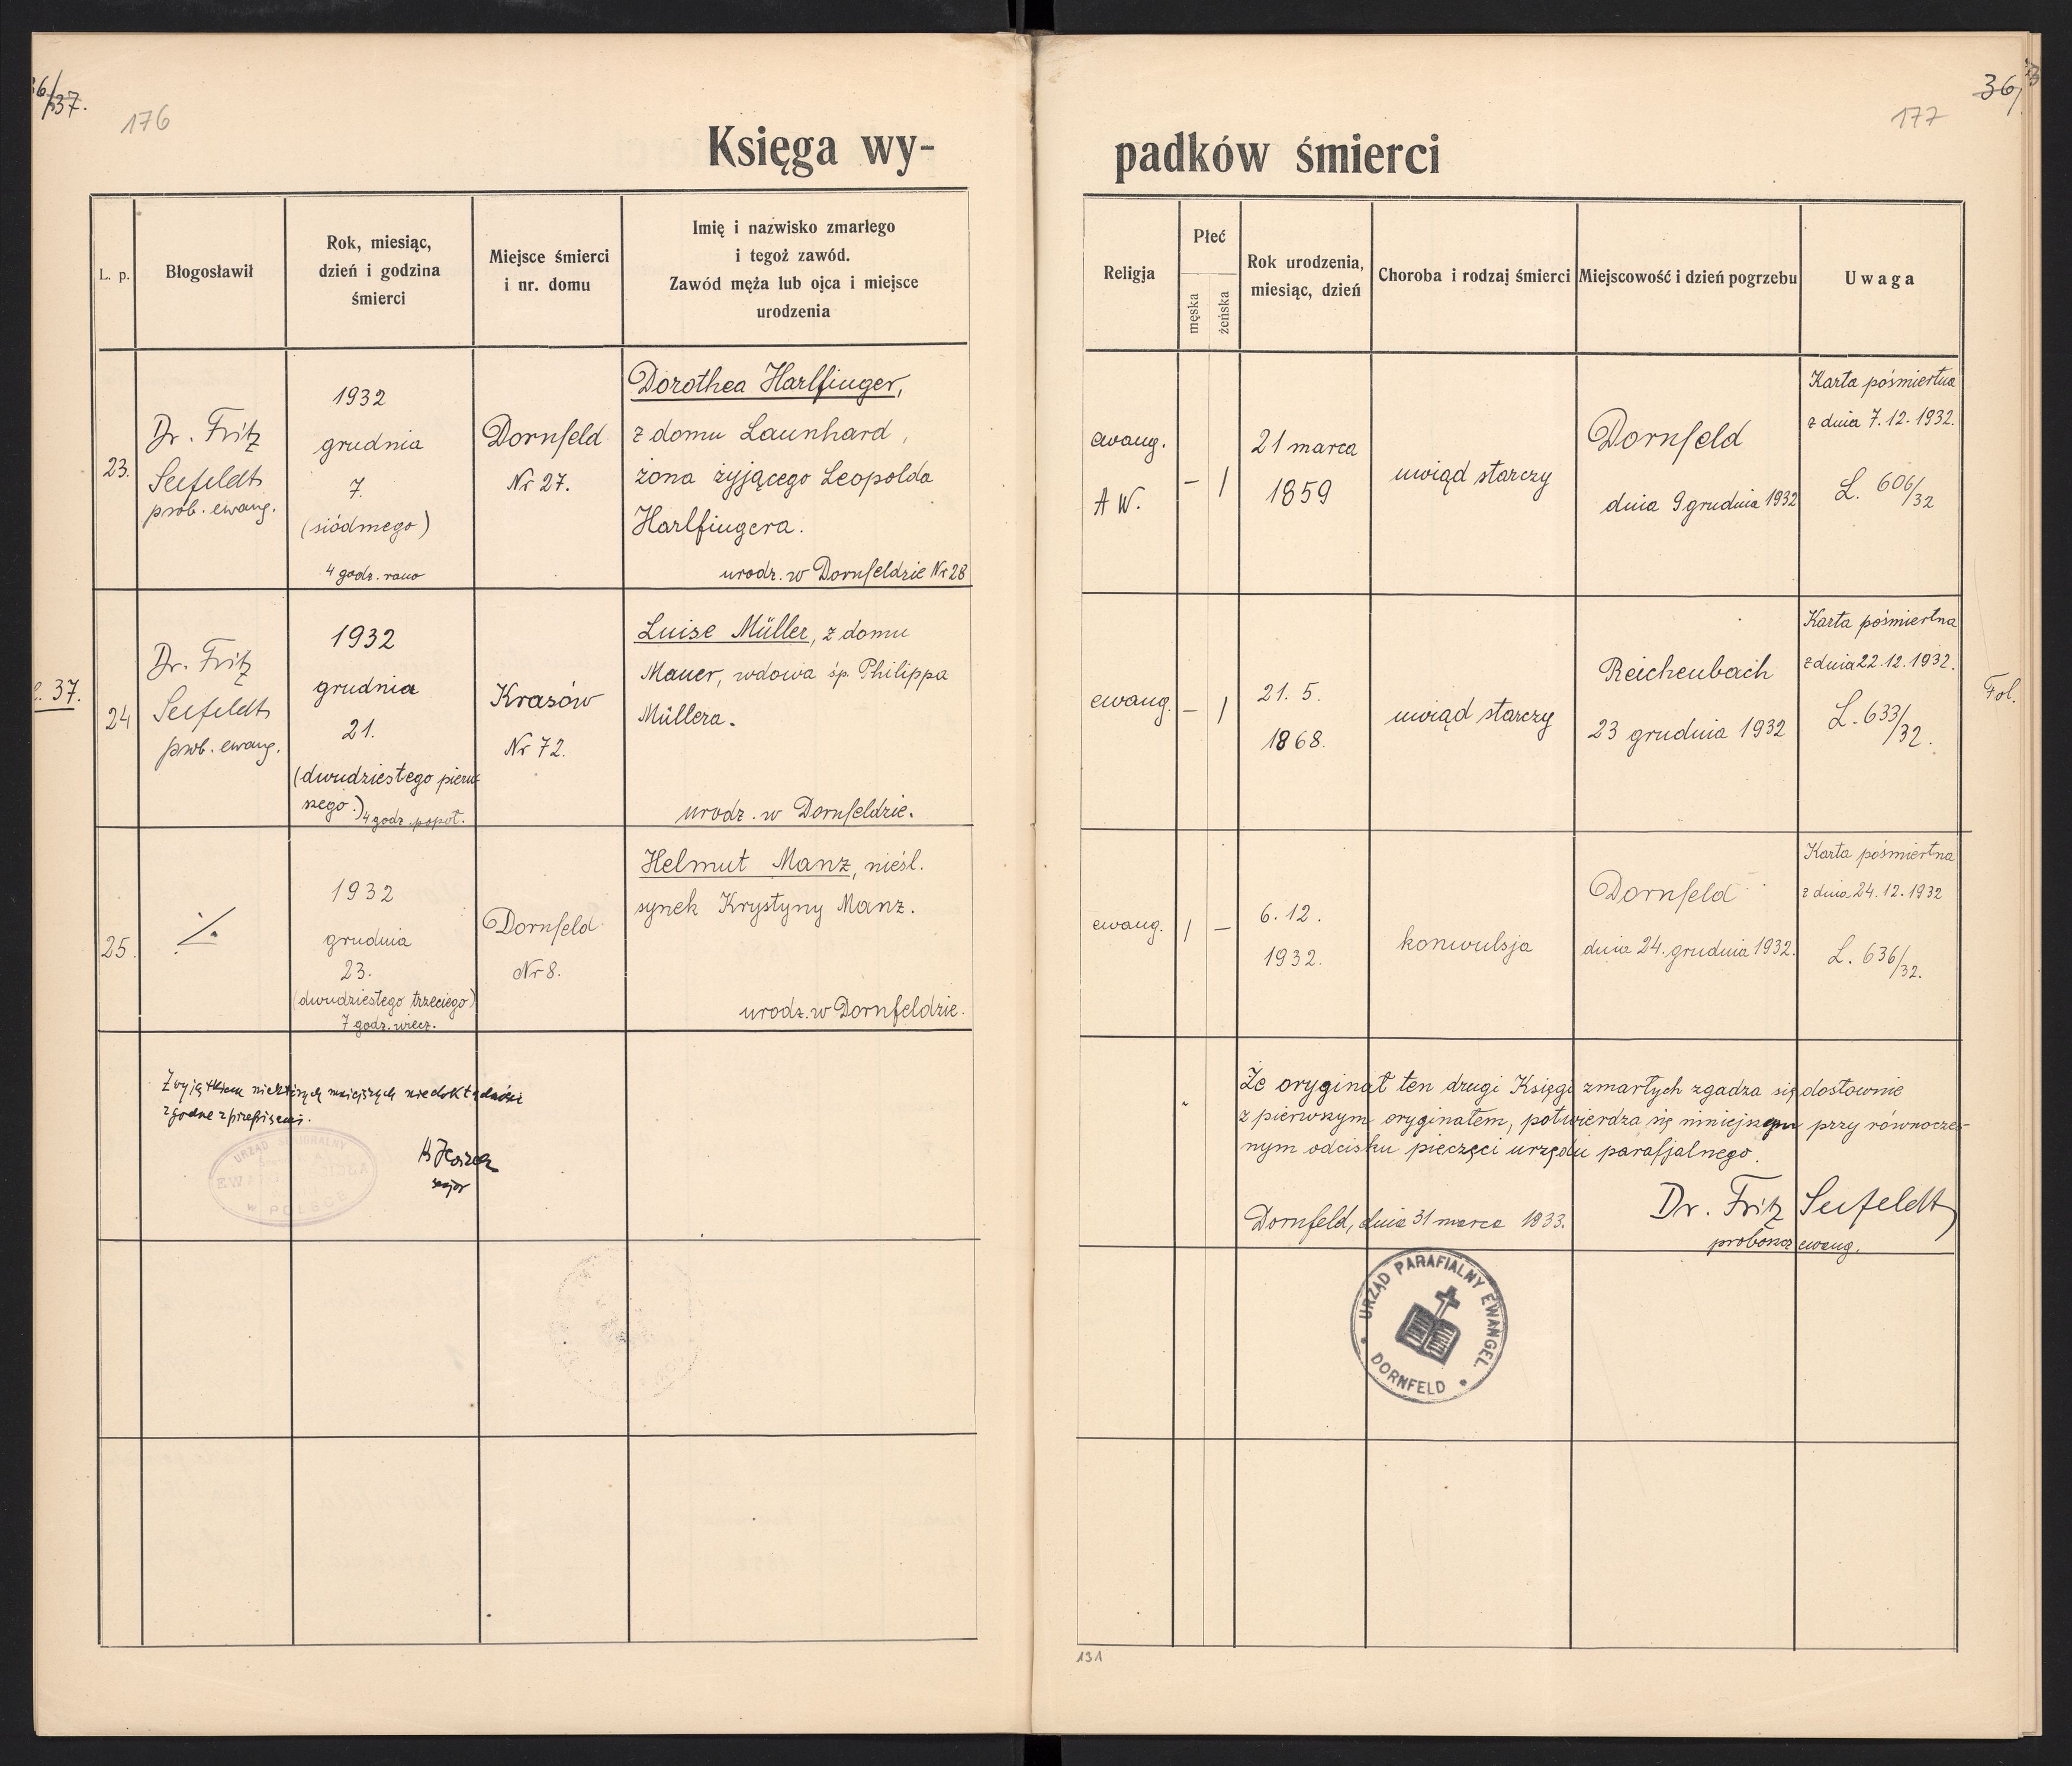 36/37.
176
Księga wy-
L. p.
Błogosławił
Rok, miesiąc,
dzień i godzina
śmierci
Miejsce śmierci
i nr. domu
Imię i nazwisko zmarłego
i tegoż zawód.
Zawód męża lub ojca i miejsce
urodzenia
23.
Dr. Fritz
Seefeldt
prob. ewang.
1932
grudnia
7.
(siódmego)
4 godz. rano
Dornfeld
Nr 27.
Dorothea Harlfinger,
z domu Launhard,
żona żyjącego Leopolda
Harlfingera.
urodz. w Dornfeldzie Nr 28
37.
24
Dr. Fritz
Seefeldt
prob. ewang.
1932
grudnia
21.
(dwudziestego pierw-
szego.) 4 godz. popoł.
Krasów
Nr 72.
Luise Müller, z domu
Mauer, wdowa śp. Philippa
Müllera.
urodz. w Dornfeldzie.
25.
1932
grudnia
23.
(dwudziestego trzeciego)
7 godz. wiecz.
Dornfeld
Nr 8.
Helmut Manz, nieśl.
synek Krystyny Manz.
urodz. w Dornfeldzie.
Z wyjątkiem niektórych mniejszych niedokładności
zgodne z przepisami.
URZĄD SENIORALNY
EWANG.
w POLSCE
36/
177
padków śmierci
Religja
Płeć
męska
żeńska
Rok urodzenia,
miesiąc, dzień
Choroba i rodzaj śmierci
Miejscowość i dzień pogrzebu
Uwaga
ewang.
A W.
– |
21 marca
1859
uwiąd starczy
Dornfeld
dnia 9 grudnia 1932
Karta pośmiertna
z dnia 7.12.1932.
L. 606/32
ewang.
– |
21. 5.
1868.
uwiąd starczy
Reichenbach
23 grudnia 1932
Karta pośmiertna
z dnia 22.12.1932.
L. 633/32.
Fol.
ewang.
| –
6. 12.
1932.
konwulsja
Dornfeld
dnia 24. grudnia 1932.
Karta pośmiertna
z dnia 24.12.1932
L. 636/32.
Że oryginał ten drugi Księgi zmarłych zgadza się dosłownie
z pierwszym oryginałem, potwierdza się niniejszym przy równocze-
nym odcisku pieczęci urzędu parafjalnego.
Dornfeld, dnia 31 marca 1933.
Dr. Fritz Seefeldt
proboszcz ewang.
URZĄD PARAFIALNY EWANGEL.
DORNFELD
131